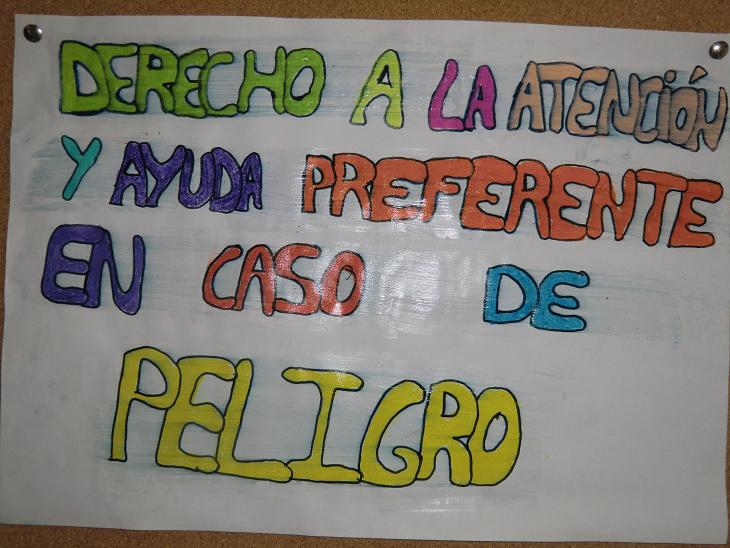 DERECHO A LA ATENCIÓN
Y AYUDA PREFERENTE
EN CASO DE
PELIGRO